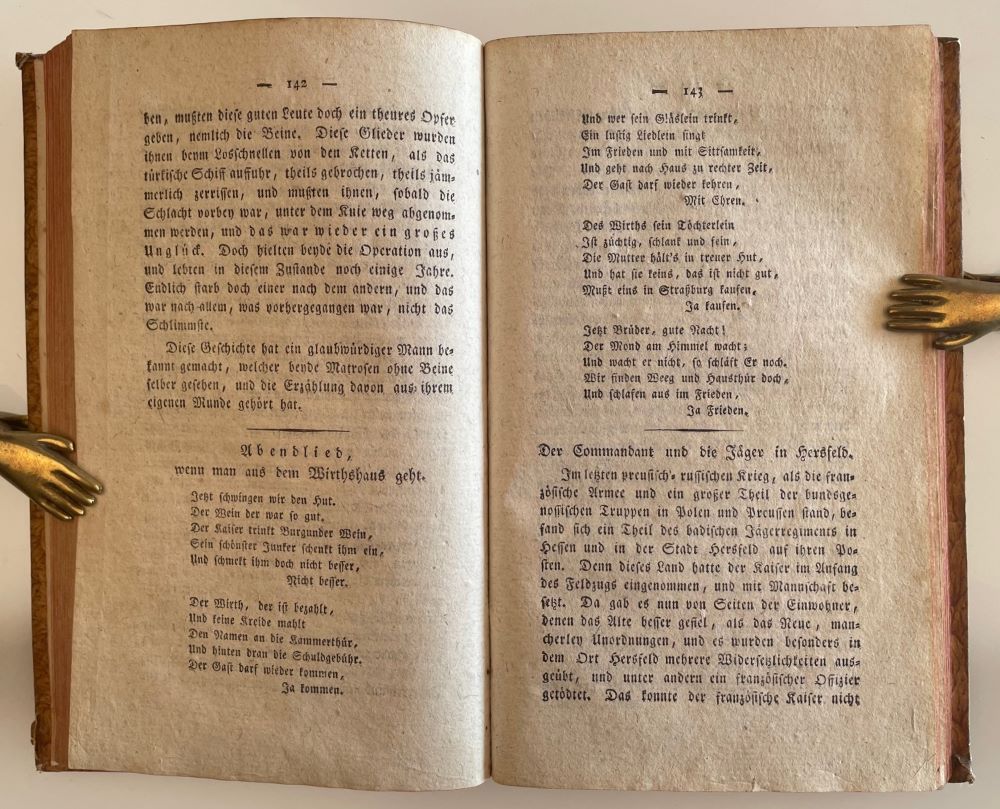 — 142 —
ben, mußten diese guten Leute doch ein theures Opfer
geben, nemlich die Beine. Diese Glieder wurden
ihnen beym Losschnellen von den Ketten, als das
türkische Schiff auffuhr, theils gebrochen, theils jäm-
merlich zerrissen, und mußten ihnen, sobald die
Schlacht vorbey war, unter dem Knie weg abgenom-
men werden, und das war wieder ein großes
Unglück. Doch hielten beyde die Operation aus,
und lebten in diesem Zustande noch einige Jahre.
Endlich starb doch einer nach dem andern, und das
war nach allem, was vorhergegangen war, nicht das
Schlimmste.
Diese Geschichte hat ein glaubwürdiger Mann be-
kannt gemacht, welcher beyde Matrosen ohne Beine
selber gesehen, und die Erzählung davon aus ihrem
eigenen Munde gehört hat.
Abendlied,
wenn man aus dem Wirthshaus geht.
Jetzt schwingen wir den Hut.
Der Wein der war so gut.
Der Kaiser trinkt Burgunder Wein,
Sein schönster Junker schenkt ihm ein,
Und schmekt ihm doch nicht besser,
Nicht besser.
Der Wirth, der ist bezahlt,
Und keine Kreide mahlt
Den Namen an die Kammerthür,
Und hinten dran die Schuldgebühr.
Der Gast darf wieder kommen,
Ja kommen.
— 143 —
Und wer sein Gläslein trinkt,
Ein lustig Liedlein singt
Im Frieden und mit Sittsamkeit,
Und geht nach Haus zu rechter Zeit,
Der Gast darf wieder kehren,
Mit Ehren.
Des Wirths sein Töchterlein
Ist züchtig, schlank und fein,
Die Mutter hält's in treuer Hut,
Und hat sie keins, das ist nicht gut,
Mußt eins in Straßburg kaufen,
Ja kaufen.
Jetzt Brüder, gute Nacht!
Der Mond am Himmel wacht;
Und wacht er nicht, so schläft Er noch.
Wir finden Weeg und Hausthür doch,
Und schlafen aus im Frieden,
Ja Frieden.
Der Commandant und die Jäger in Hersfeld.
Im letzten preusisch-russischen Krieg, als die fran-
zösische Armee und ein großer Theil der bundsge-
nossischen Truppen in Polen und Preussen stand, be-
fand sich ein Theil des badischen Jägerregiments in
Hessen und in der Stadt Hersfeld auf ihren Po-
sten. Denn dieses Land hatte der Kaiser im Anfang
des Feldzugs eingenommen, und mit Mannschaft be-
setzt. Da gab es nun von Seiten der Einwohner,
denen das Alte besser gefiel, als das Neue, man-
cherley Unordnungen, und es wurden besonders in
dem Ort Hersfeld mehrere Widersetzlichkeiten aus-
geübt, und unter andern ein französischer Offizier
getödtet. Das konnte der französische Kaiser nicht